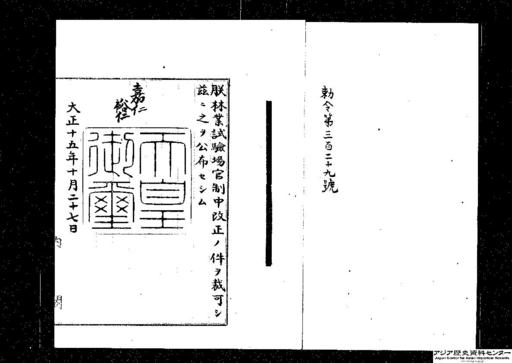 勅令第三百二十九號
朕林業試驗場官制中改正ノ件ヲ裁可シ
茲ニ之ヲ公布セシム
嘉仁
裕仁
天皇
御璽
大正十五年十月二十七日
内閣
アジア歴史資料センター
Japan Center for Asian Historical Records